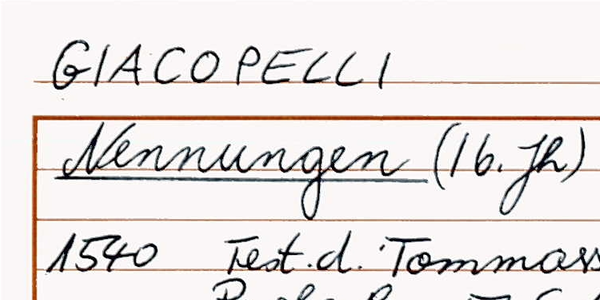 GIACOPELLI
Nennungen (16. Jh)
1540 Test. d. Tommass